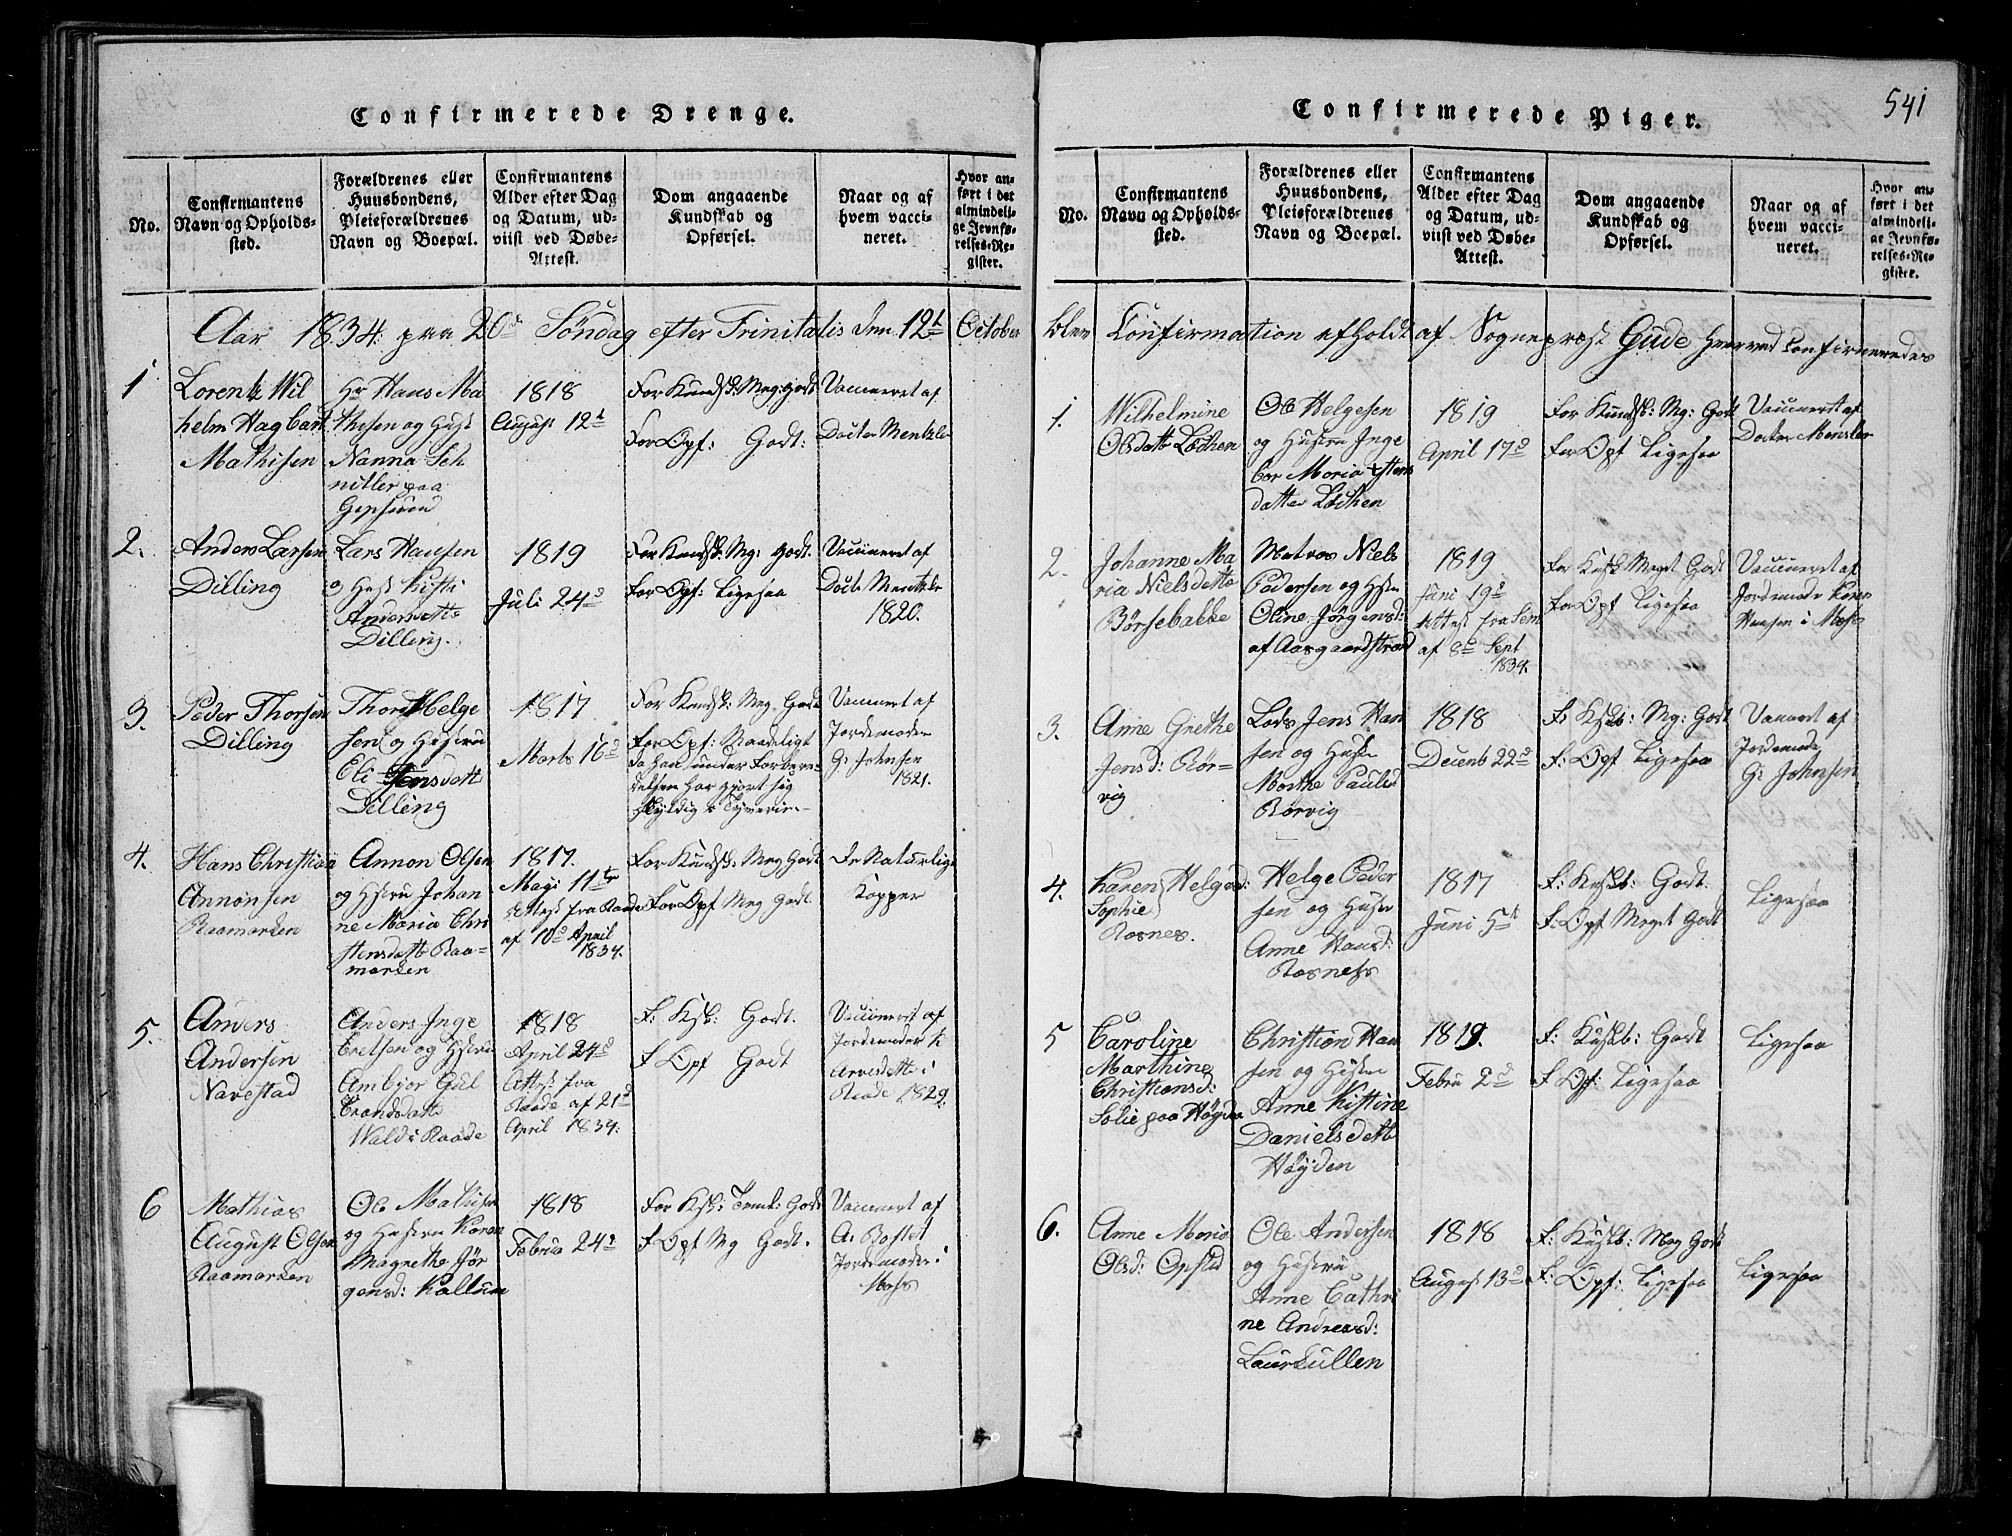 Confirmerede Drenge.
No.
Confirmantens
Navn og Opholds-
sted.
Forældrenes eller
Huusbondens,
Pleieforældrenes
Navn og Boepæl.
Confirmantens
Alder efter Dag
og Datum, ud-
viist ved Døbe-
Attest.
Dom angaaende
Kundskab og
Opførsel.
Naar og af
hvem vacci-
neret.
Hvor an-
ført i det
almindeli-
ge Jevnfø-
relses-Re-
gister.
Aar 1834 paa 20de Söndag efter Trinitatis den 12t October
1
Lorentz Wil
helm Hagbart
Mathisen
Hr Hans Ma
thesen og Hust
Nanna Sch
niller paa
1818
August 12t
For Kundsk: Meg: Godt
For Opf: Godt:
Vaccineret af
Docter Mentzler
2.
Anders Larsen
Dilling
Lars Hansen
og Hust Kisti
Andersdatte
Dilling.
1819
Juli 24d
For Kundsk: Mg: Godt.
For Opf: Ligesaa
Vaccineret af
Docter Mentzler
1820.
3.
Peder Thorsen
Dilling
Thor Helge
sen og Hustru
Eli Jensdatt
Dilling
1817
Marts 16d
For Kundsk: Meg. Godt
For Opf: Maadeligt
da han under Forbere-
delsen har gjort sig
skyldig i Tyverie.-
Vaccineret af
Jordemoder
G: Johnsen
1821.
4.
Hans Christian
Annonsen
Raamarken
Annon Olsen
og Hstru Johan
ne Maria Chri
stensdatt Raa-
marken
1817.
Maji 11te
Attest fra Raade
af 10d April
1834.
For Kundsk: Meg Godt
For Opf Meg Godt.
De Naturlige
Kopper
5.
Anders
Andersen
Navestad
Anders Inge
bretsen og Hstru
Ambjor Gul
brandsdatt
Wald i Raade
1818
April 24d
Attest fra
Raade af 21d
April 1834.
F: Ksk: Godt.
F Opf Godt
Vaccineret af
Jordemoder K
Arvesdatte i
Raade 1829.
6
Mathias
August Olsen
Raamarken
Ole Mathisen
og Hustru Karen
Magrethe Jör
gensd: Kallum
1818
Februa 24d
For Ksk: Temel: Godt
F Opf Mg Godt.
Vaccineret af
Jordemoder i
Moss
541
Confirmerede Piger.
No.
Confirmantens
Navn og Opholds-
sted.
Forældrenes eller
Huusbondens,
Pleieforældrenes
Navn og Boepæl.
Confirmantens
Alder efter Dag
og Datum, ud-
viist ved Døbe-
Attest.
Dom angaaende
Kundskab og
Opførsel.
Naar og af
hvem vacci-
neret.
Hvor an-
ført i det
almindeli-
ge Jevnfø-
relses-Re-
gister.
blev Confirmation afholdt af Sogneprest Gude hvorved Confirmeredes
1.
Wilhelmine
Olsdatt Löchen
Ole Helgesen
og Hustru Inge
bor Maria
datter Löchen
1819
April 17d
For Kundsk: Mg: Godt
For Opf Ligesaa
Vaccineret af
Docter Mensler
2.
Johanne Ma
ria Nielsdatte
Börsebakke
Matros Niels
Pedersen og Hstru
Oline Jörgensd:
af Aasgaardstrand
1819
Juni 19d
Attest fra Sem
af 8d Sept
1834.
For Kskb Meget Godt
For Opf Ligesaa
Vaccineret af
Jordemoder Karen
Hansen i Moss
3.
Anne Grethe
Jensd: Rör-
vig
Lods Jens Han
sen og Hustru
Marthe Paulsd
Rorvig
1818
Decemb 22d
F: Kskb: Mg: Godt
F: Opf Ligesaa
Vaccineret af
Jordemode
G: Johnsen
4.
Karen Helgesd:
Sophie
Rosnes.
Helge Peder
sen og Hustru
Anne Hansd:
Rosness
1817
Juni 5t
F: Kskb: Godt.
F: Opf Meget Godt
Ligesaa
5
Caroline
Marthine
Christiansd:
Solie paa Höyden
Christian Han
sen og Hustru
Anne Kistine
Danielsdatte
Höyden
1819.
Febru 2d
F: Kskb: Godt
F Opf: Ligesaa
Ligesaa
6.
Anne Maria
Olsd: Opstad
Ole Andersen
og Hustru
Anne Cathri
ne Andreasd:
Laurkullen
1818
August 13d
F: Kskb: Meg Godt
F: Opf: Ligesaa
Ligesaa